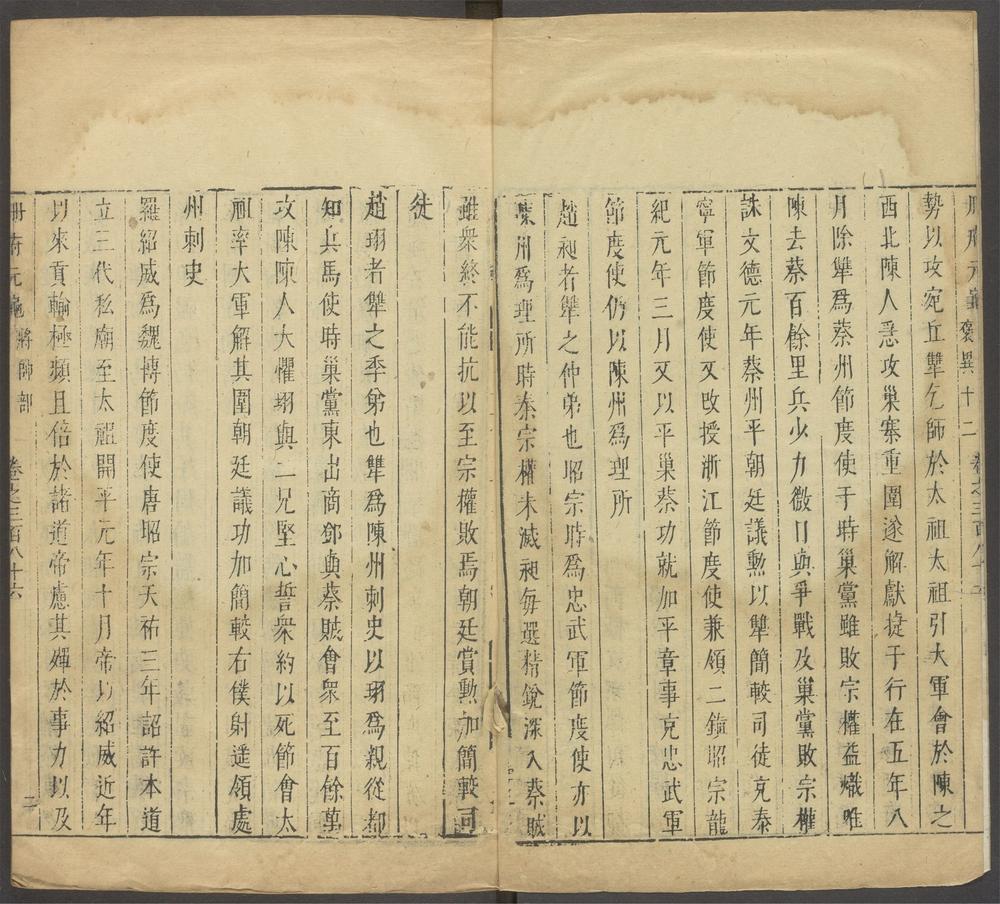 冊府元龜 襃異十二 卷之三百八十六
勢以攻宛丘犨乞師於太祖太祖引大軍會於陳之
西北陳人悉攻巢寨重圍遂解獻捷于行在五年八
月除犨爲蔡州節度使于時巢黨雖敗宗權益熾唯
陳去蔡百餘里兵少力微日與爭戰及巢黨敗宗權
誅文德元年蔡州平朝廷議勲以犨簡較司徒充泰
寧軍節度使又改授浙江節度使兼領二鎮昭宗龍
紀元年三月又以平巢蔡功就加平章事充忠武軍
節度使仍以陳州爲理所
趙昶者犨之仲弟也昭宗時爲忠武軍節度使亦以
陳州爲理所時秦宗權未滅昶每選精銳深入蔡賊
雖衆終不能抗以至宗權敗焉朝廷賞勲加簡較司
徒
趙珝者犨之季弟也犨爲陳州刺史以珝爲親從都
知兵馬使時巢黨東出商鄧與蔡賊會衆至百餘萬
攻陳陳人大懼珝與二兄堅心誓衆約以死節會太
祖率大軍解其圍朝廷議功加簡較右僕射遥領處
州刺史
羅紹威爲魏博節度使唐昭宗天祐三年詔許本道
立三代私廟至太祖開平元年十月帝以紹威近年
以來貢輸極頻且倍於諸道帝慮其殫於事力以及
冊府元龜 將帥部 卷之三百八十六 二